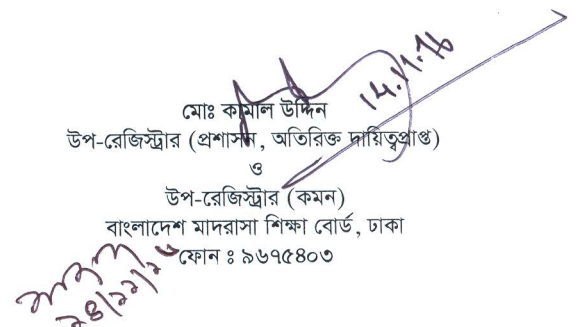 14.11.16
মোঃ কামাল উদ্দিন
উপ-রেজিস্ট্রার (প্রশাসন, অতিরিক্ত দায়িত্বপ্রাপ্ত)
ও
উপ-রেজিস্ট্রার (কমন)
বাংলাদেশ মাদরাসা শিক্ষা বোর্ড, ঢাকা
ফোন ঃ ৯৬৭৫৪০৩